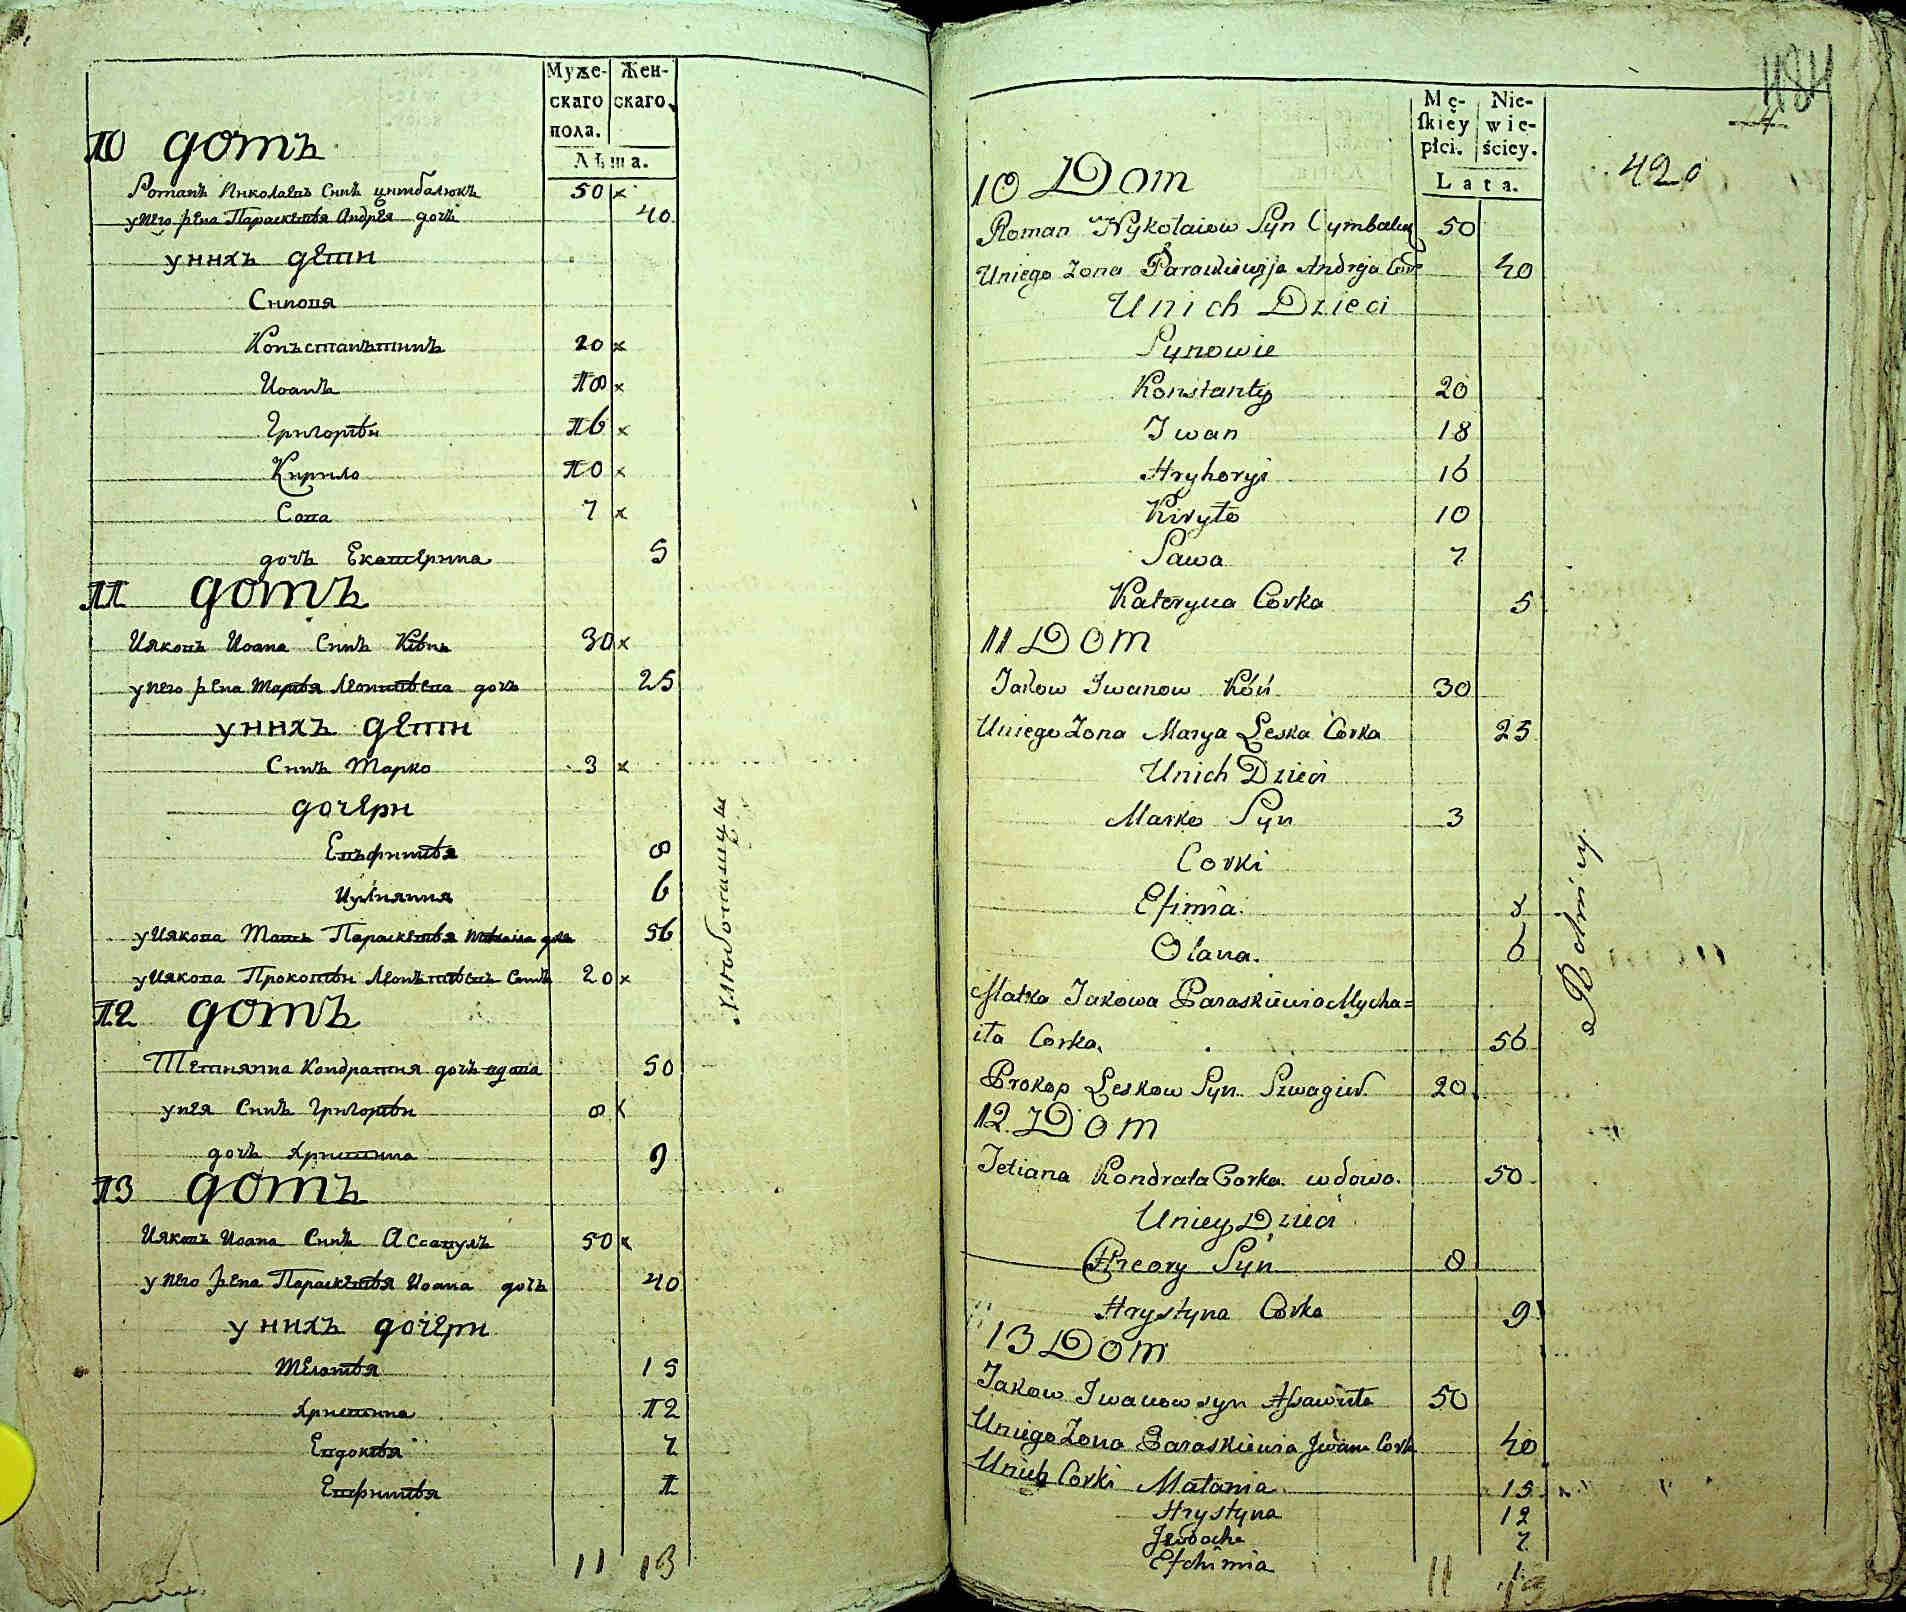 Муже-
скаго
пола.
Жен-
скаго.
Лѣта.
10 домъ
Романъ Николаевъ Синъ цимбалюкъ 50 ×
у него жена Параскевія Андрея дочь 40
у нихъ дети
Синовя
Конъстанътинъ 20 ×
Иоанъ 18 ×
Григорій 16 ×
Кирило 10 ×
Сава 7 ×
дочь Екатерина 5
11 домъ
Ияковъ Иоана Синъ Кѣнь 30 ×
у него жена Марія дочь 25
у нихъ дети
Синъ Марко 3 ×
дочери
Евъфимія 8
Иулияния 6
у Иякова Мать Параскевія дочь 56
у Иякова Прокопій 20 ×
12 домъ
Тетияна Кондратия дочь вдова 50
у нея Синъ Григорій 8 ×
дочь Христина 9
13 домъ
Ияковъ Иоана Синъ Ассавулъ 50 ×
у него жена Параскевія Иоана дочь 40
у нихъ дочери
Меланія 15
Христина 12
Евдокія 7
Евфимія 1
11 13
Mę-
skiey
płci.
Nie-
wie-
ściey.
Lata.
484
420
10 Dom
Roman Nykołaiow Syn Cymbaluk 50
Uniego Zona Paraskiewija Andreja Cork 40
Unich Dzieci
Synowie
Konstanty 20
Iwan 18
Hryhoryi 16
Kiryło 10
Sawa 7
Kateryna Corka 5
11 Dom
Jakow Iwanow Kóń 30
Uniego Zona Marya Leska Corka 25
Unich Dzieci
Marko Syn 3
Corki
Efimia 8
Olana. 6
Matka Jakowa Paraskiewia Mycha=
iła Corka. 56
Prokop Leskow Syn Szwagier 20
12 Dom
Tetiana Kondrata Corka wdowa. 50
Uniey Dzieci
Hreory Syn 8
Hrystyna Corka 9
13 Dom
Jakow Iwanow syn Assawuła 50
Uniego Zona Paraskiewia Iwana Cork 40
Unich Corki Małania 15
Hrystyna 12
Jewdocha 7
Efchimia 1
11 13
Rolnicy